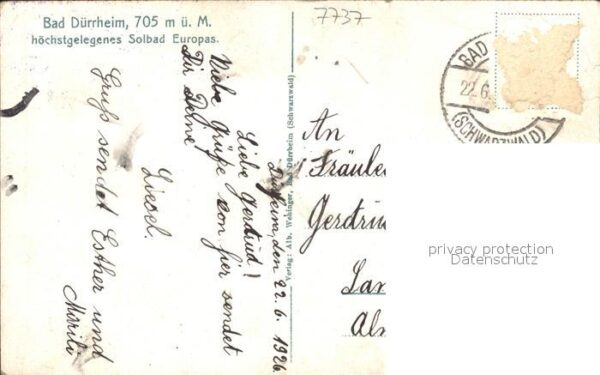 Bad Dürrheim, 705 m ü. M.
höchstgelegenes Solbad Europas.
7737
BAD
22.6
(SCHWARZWALD)
Dürrheim, den 22. 6. 1926
Liebe Gertrud!
Viele Grüße von hier sendet
Dir Deine
Liesel.
Gruß sendet Esther und
Verlag: Alb. Wehinger, Bad Dürrheim (Schwarzwald)
An
Fräule
Gertru
privacy protection
Datenschutz